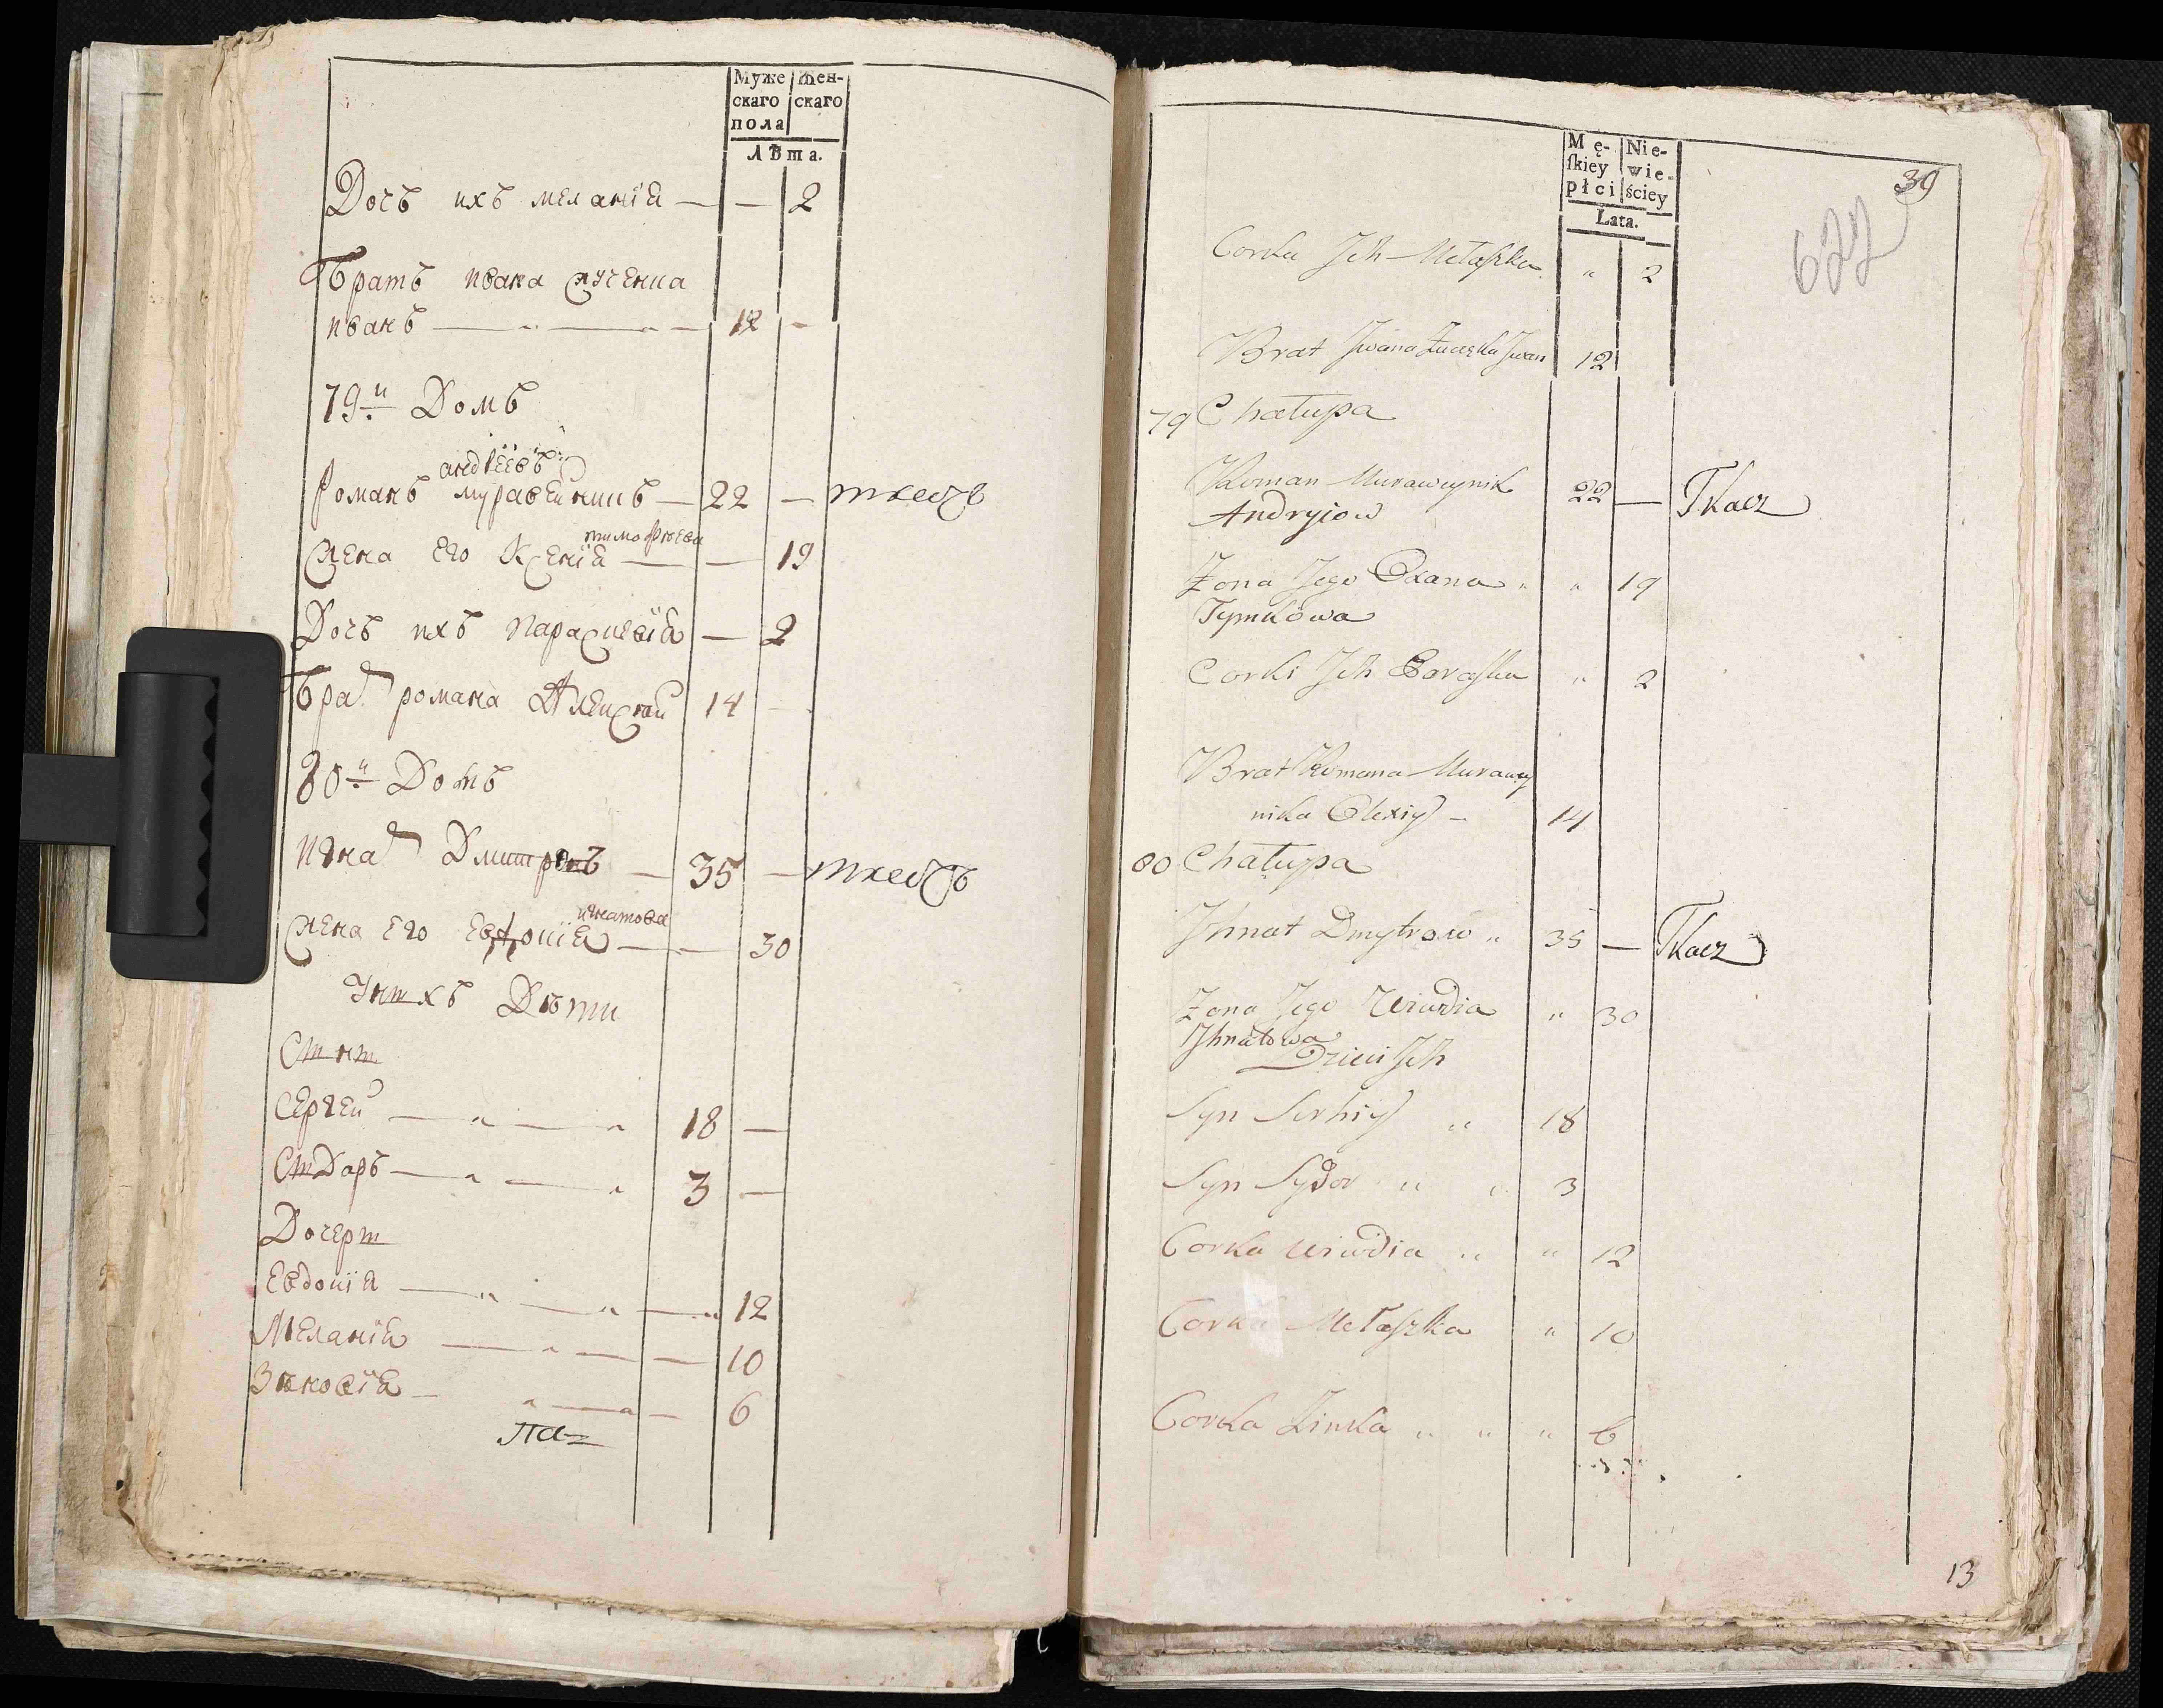 Муже Жен-
скаго скаго
пола
лѣта.
Дочь ихъ меланія — — 2
Братъ ивана
иванъ — 12 -
79й Домъ
андрѣевъ
Романъ муравейникъ — 22 — ткачъ
тимофѣева
Жена его Ксенія — — 19
Дочь ихъ Параскевія — 2
Брат романа Алексѣй 14 -
80й Домъ
Игнат Дмитровъ — 35 — ткачъ
игнатова
Жена его Евдокія — — 30
У нихъ Дѣти
Сыны
Сергей — " — " 18 —
Сидаръ — " — " 3 —
Дочери
Евдокія — " — " — " 12
Меланія — " — — 10
Зѣновія — " — " — 6
Mę- Nie-
skiey wie-
płci ściey
Lata.
39
622
Corka Jch Mełaszka " 2
Brat Jwana Jwan 12
79 Chałupa
Roman Muraweynik 22 — Tkacz
Andryiow
Zona Jego Oxana " " 19
Tymkowa
Corki Jch Paraska " 2
Brat Romana Murawey
nika Olexiy - 14
80 Chałupa
Jhnat Dmytrow " 35 — Tkacz
Zona Jego Wiwdia " 30
Jhnatowa
Dzieci Jch
Syn Serhiy " 18
Syn Sydor " " 3
Corka Wiwdia " " 12
Corka Mełaszka " 10
Corka Zinka " " " 6
13